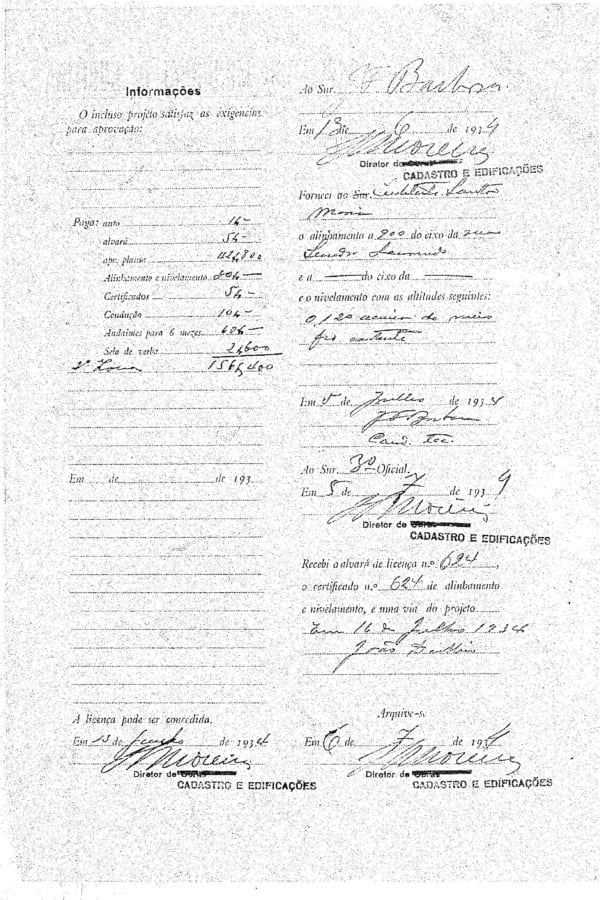 Informações
O incluso projeto satisfaz as exigencias
para aprovação:
Paga: auto 1$-
alvará 5$-
apr. planta
Alinhamento e nivelamento 20$-
Certificados 5$-
Condução 10$-
Andaimes para 6 mezes
Selo de verba 2$600
2ª Zona
Em de de 193
A licença pode ser concedida.
Em 13 de Junho de 1934
Moreira
Diretor de Obras
CADASTRO E EDIFICAÇÕES
Ao Snr. J F Barbosa
Em 13 de 6 de 1934
Moreira
Diretor de
CADASTRO E EDIFICAÇÕES
Forneci ao Snr. Santos
Maria
o alinhamento a 900 do eixo da rua
e a do eixo da
e o nivelamento com as altitudes seguintes:
0,120 acima do meio
fio
Em 5 de Julho de 1934
Cond. Tec.
Ao Snr. 3º Oficial.
Em 5 de 7 de 1934
Moreira
Diretor de Obras
CADASTRO E EDIFICAÇÕES
Recebi o alvará de licença n.º 624
o certificado n.º 624 de alinhamento
e nivelamento, e uma via do projeto
Em 16 de Julho 1934
João
Arquive-se
Em 6 de 7 de 1934
Moreira
Diretor de Obras
CADASTRO E EDIFICAÇÕES